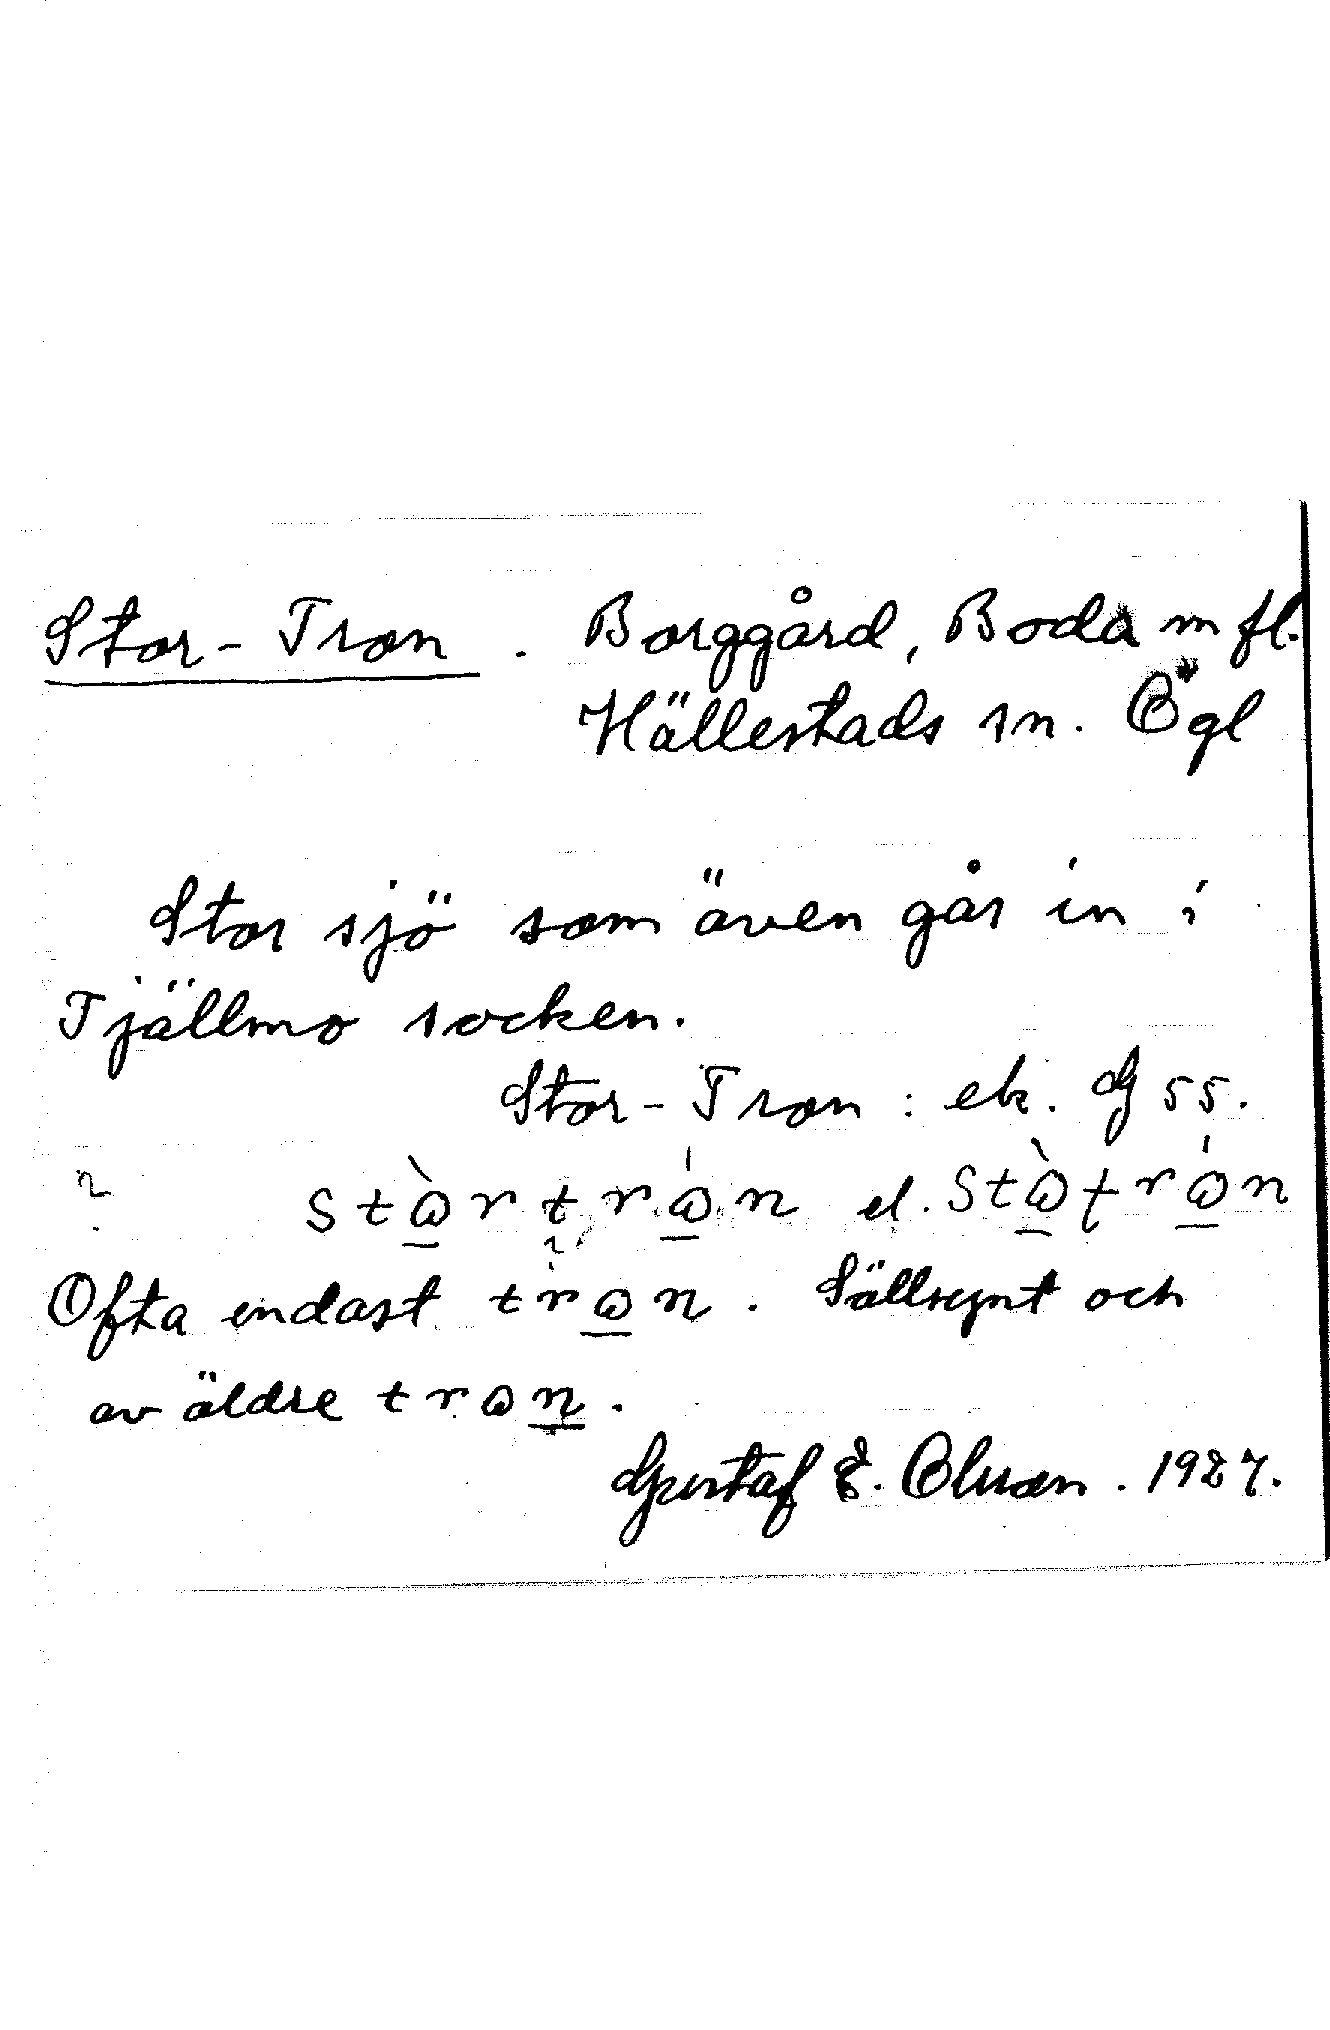 Stor-Tron. Borggård, Boda m fl.
Hällestads sn. Ögl
Stor sjö som även går in i
Tjällmo socken.
Stor-Tron: ek. G 55.
stὼ̲rtrώ̲n el. stὼ̲trώ̲n
Ofta endast trω̲n. Sällsynt och
av äldre trωn̲.
Gustaf E. Olsson. 1927.